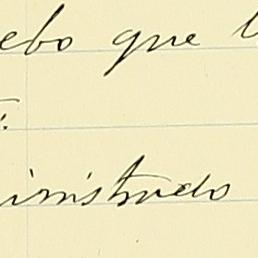 ebo que l
:
inistrado